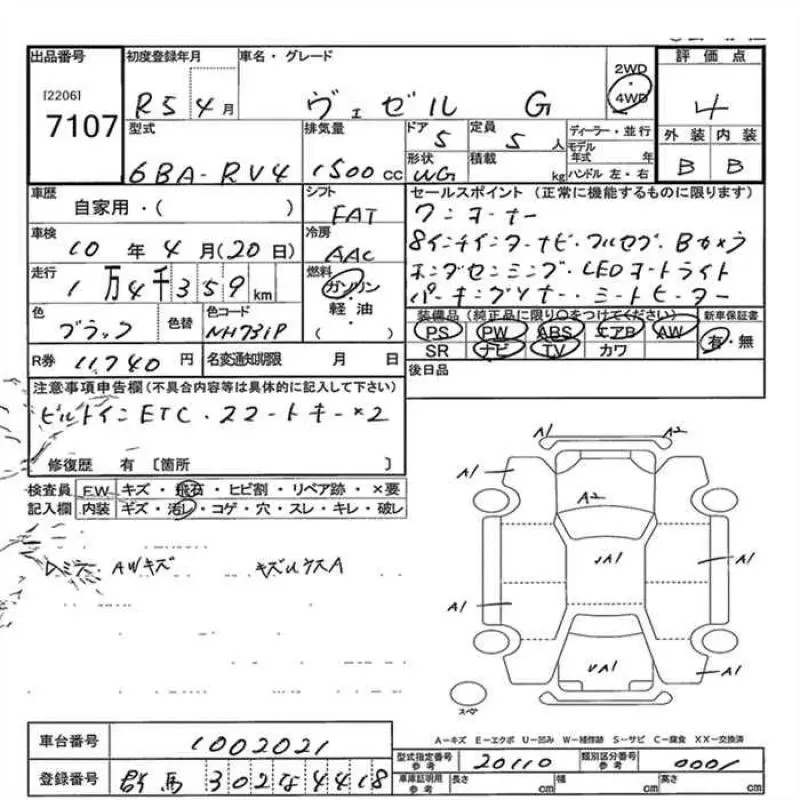 出品番号 初度登録年月 車名・グレード 評価点
[2206]
7107
R5 4月 ヴェゼル G 2WD・4WD 4
型式 排気量 ドア 定員 ディーラー・並行 外装 内装
6BA-RV4 1500cc 5 5人 モデル年式 年 B B
形状 積載 kg ハンドル 左・右
WG
車歴 シフト セールスポイント (正常に機能するものに限ります)
自家用・( ) FAT ワンオーナー
車検 冷房 8インチインターナビ・フルセグ・Bカメラ
10年4月(20日) AAC ホンダセンシング・LEDヘッドライト
走行 燃料 パーキングソナー・シートヒーター
1万4千359km ガソリン・軽油 ( )
装備品 (純正品に限り○をつけてください) 新車保証書
色 色替 色コード PS PW ABS エアB AW 有・無
ブラック NH731P SR ナビ TV カワ
R券 11740円 名変通知期限 月 日 後日品
注意事項申告欄(不具合内容等は具体的に記入して下さい)
ビルトインETC・スマートキー×2
修復歴 有 〔箇所 〕
検査員 FW キズ・飛石・ヒビ割・リペア跡・×要
記入欄 内装 キズ・汚レ・コゲ・穴・スレ・キレ・破レ
AWキズ
A1 A2
A1
A2
UA1
A1
A1
UA1
A1
スペア
A－キズ E－エクボ U－凹み W－補修跡 S－サビ C－腐食 XX－交換済
車台番号 1002021
型式指定番号 参考 20110 類別区分番号 参考 0001
登録番号 群馬 302 な 4418
車庫証明用 参考 長さ cm 幅 cm 高さ cm